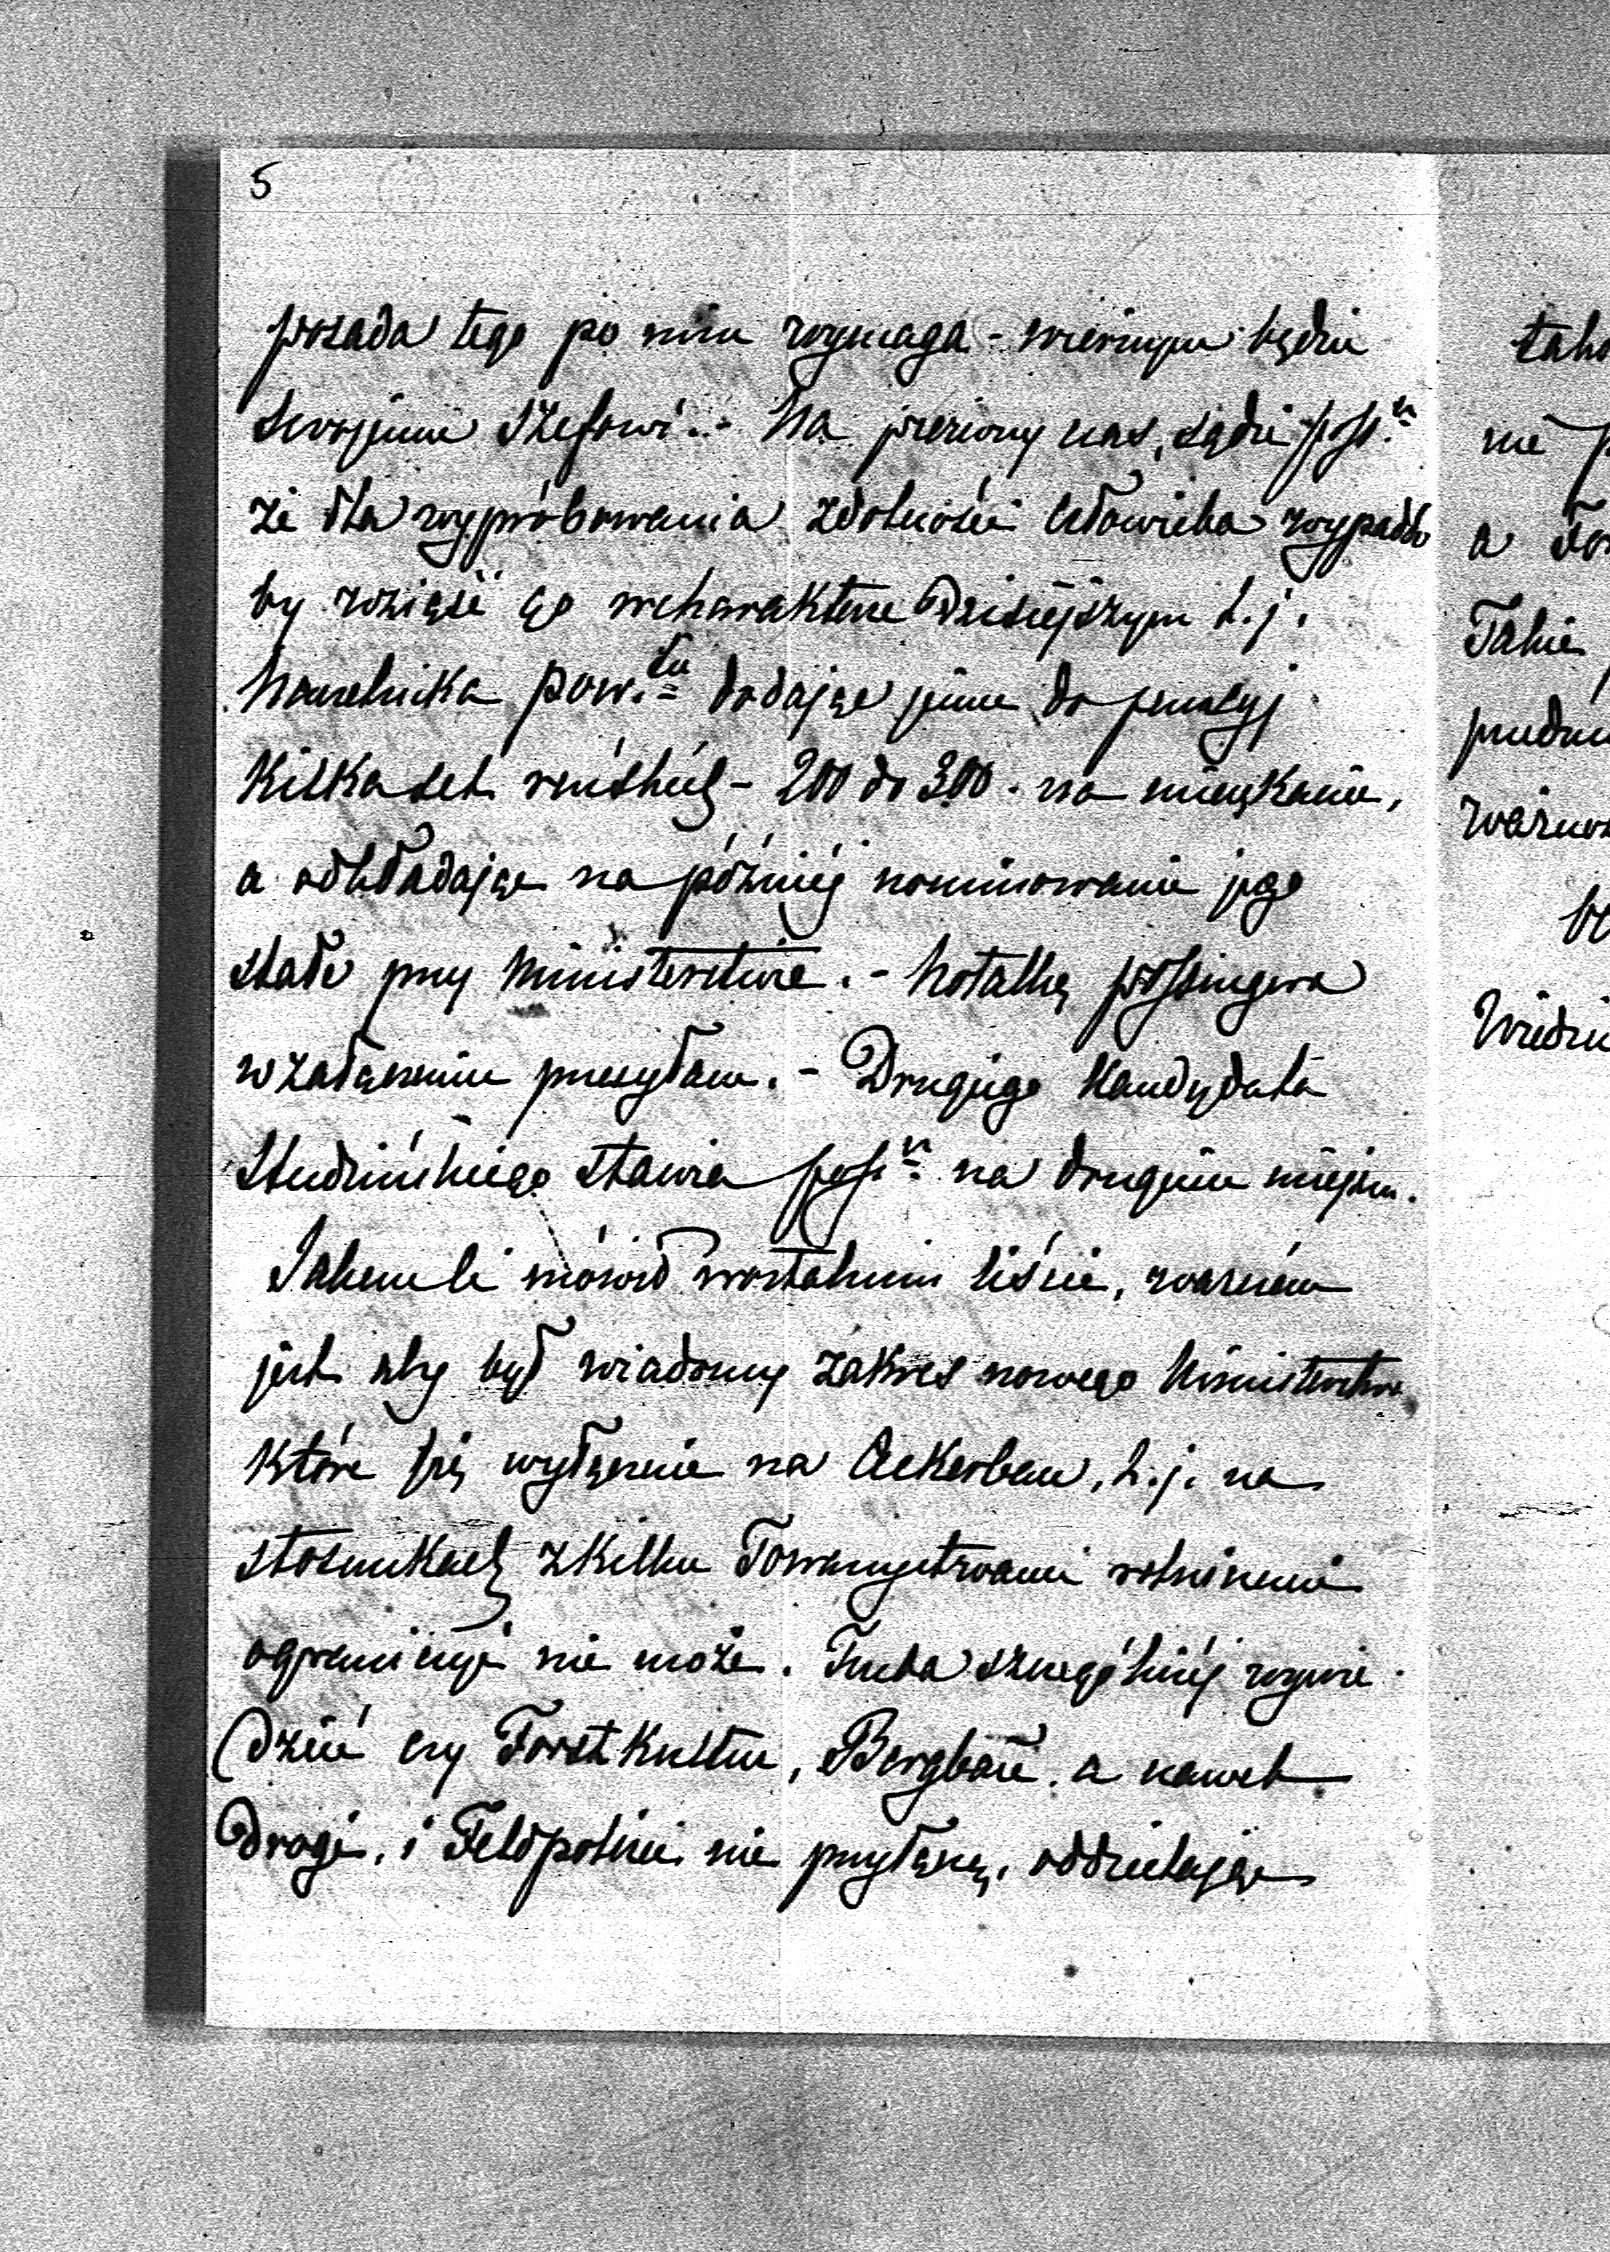 5
posada tego po nim wymaga - wiernym będzie
swojemu szefowi. - Na pierwszy czas, sądzi poss.r
że dla wypróbowania zdolności człowieka wypadło
by wziąść go wcharakterze dzisiejszym t. j.
Naczelnika pow.tu dodając jemu do pensyj
Kilkaset reńskich - 200 do 300 - na mieszkanie,
a odkładając na później nominowanie jego
stałe przy Ministerstwie. - Notatkę possingera
wzałączeniu przesyłam. - Drugiego Kandydata
Studzińskiego stawia poss.r na drugiem miejscu.
Jakem Ci mówił wostatnim liście, ważném
jest aby był wiadomy zakres nowego Ministerstwa
które się wyłącznie na Ackerbau, t. j. na
stosunkach zkilku Towarzystwami rolniczemi
ograniczyć nie może. Trzeba szczególniéj wywie
dzieć czy Forstkultur, Bergbau, a nawet
Drogi, i Feldpolizei nie przyłączą, oddzielając
tak
nie
a
Takie
ważno